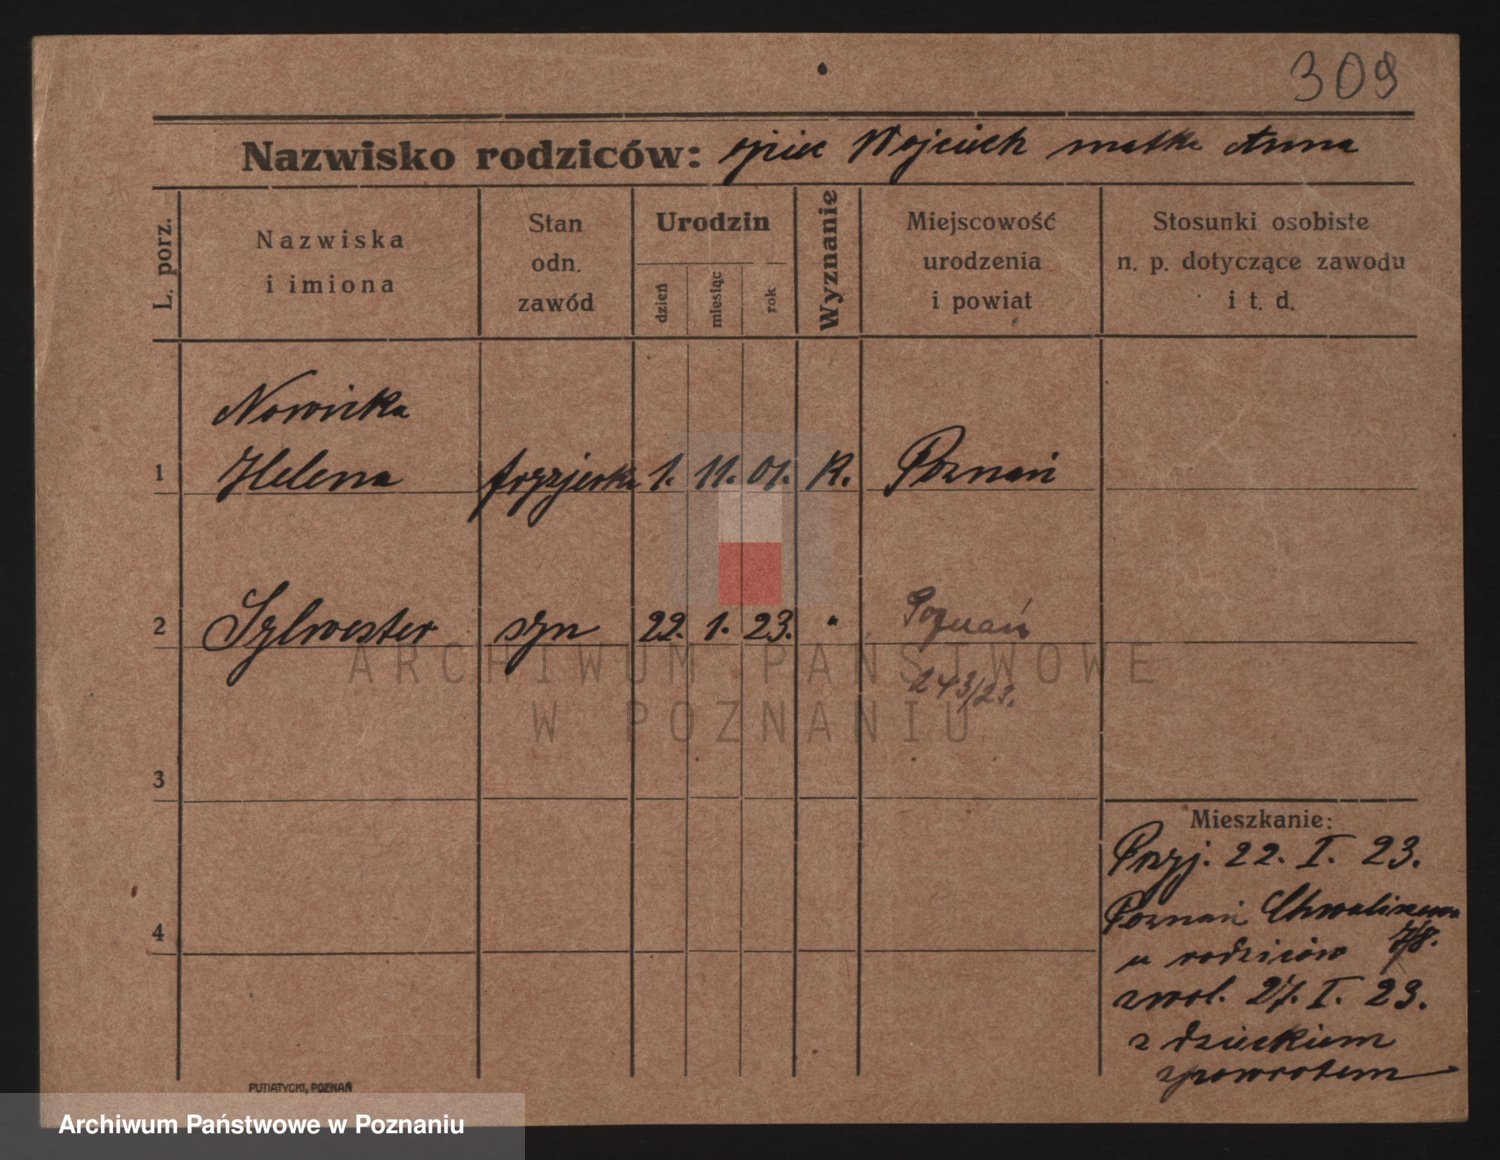 309
Nazwisko rodziców: ojciec Wojciech matka Anna
L. porz.
Nazwiska
i imiona
Stan
odn.
zawód
Urodzin
dzień
miesiąc
rok
Wyznanie
Miejscowość
urodzenia
i powiat
Stosunki osobiste
n. p. dotyczące zawodu
i t. d.
Nowicka
1 Helena fryzjerka 1. 11. 01. R. Poznań
2 Sylwester syn 22. 1. 23. " Poznań
243/23.
3
4
Mieszkanie:
Przyj. 22. I. 23.
Poznań Chwaliszewo
u rodziców 7/8.
zwol. 27. I. 23.
z dzieckiem
zpowrotem
PUTIATYCKI, POZNAŃ
ARCHIWUM PAŃSTWOWE
W POZNANIU
Archiwum Państwowe w Poznaniu